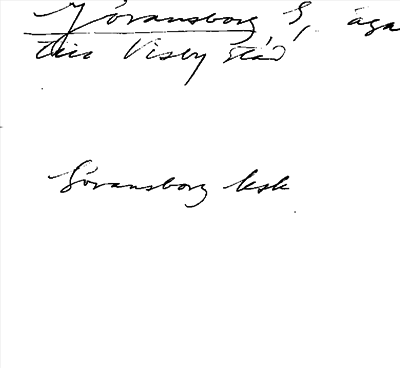 Göransborg S, äga
till Visby stad
Göransborg lssk